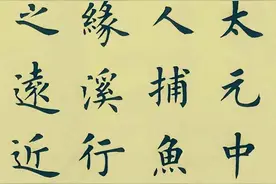 太元中
人捕魚
緣溪行
之遠近